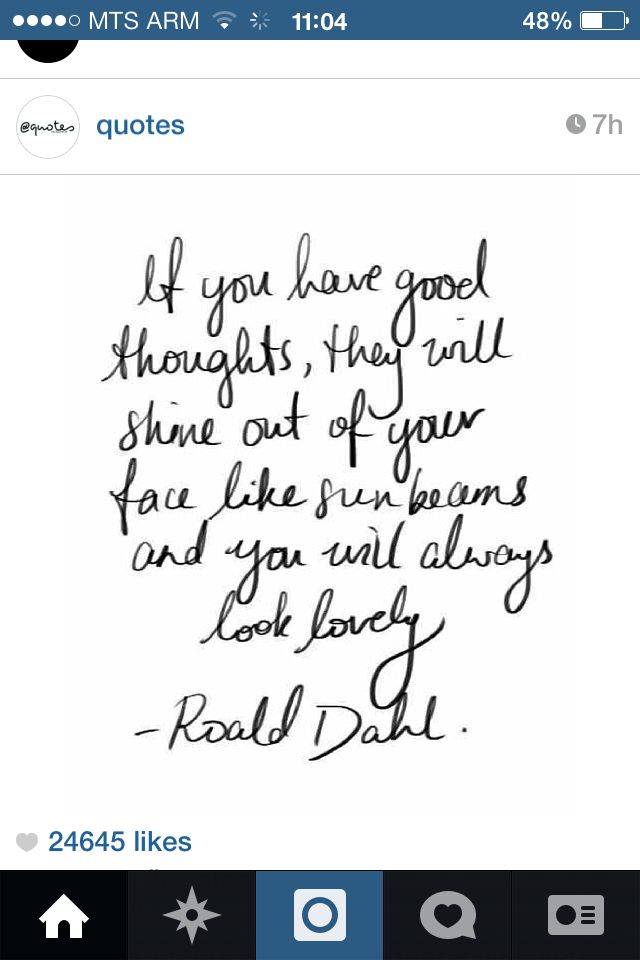 MTS ARM 11:04 48%
@quotes quotes 7h
If you have good
thoughts, they will
shine out of your
face like sunbeams
and you will always
look lovely
- Roald Dahl.
24645 likes